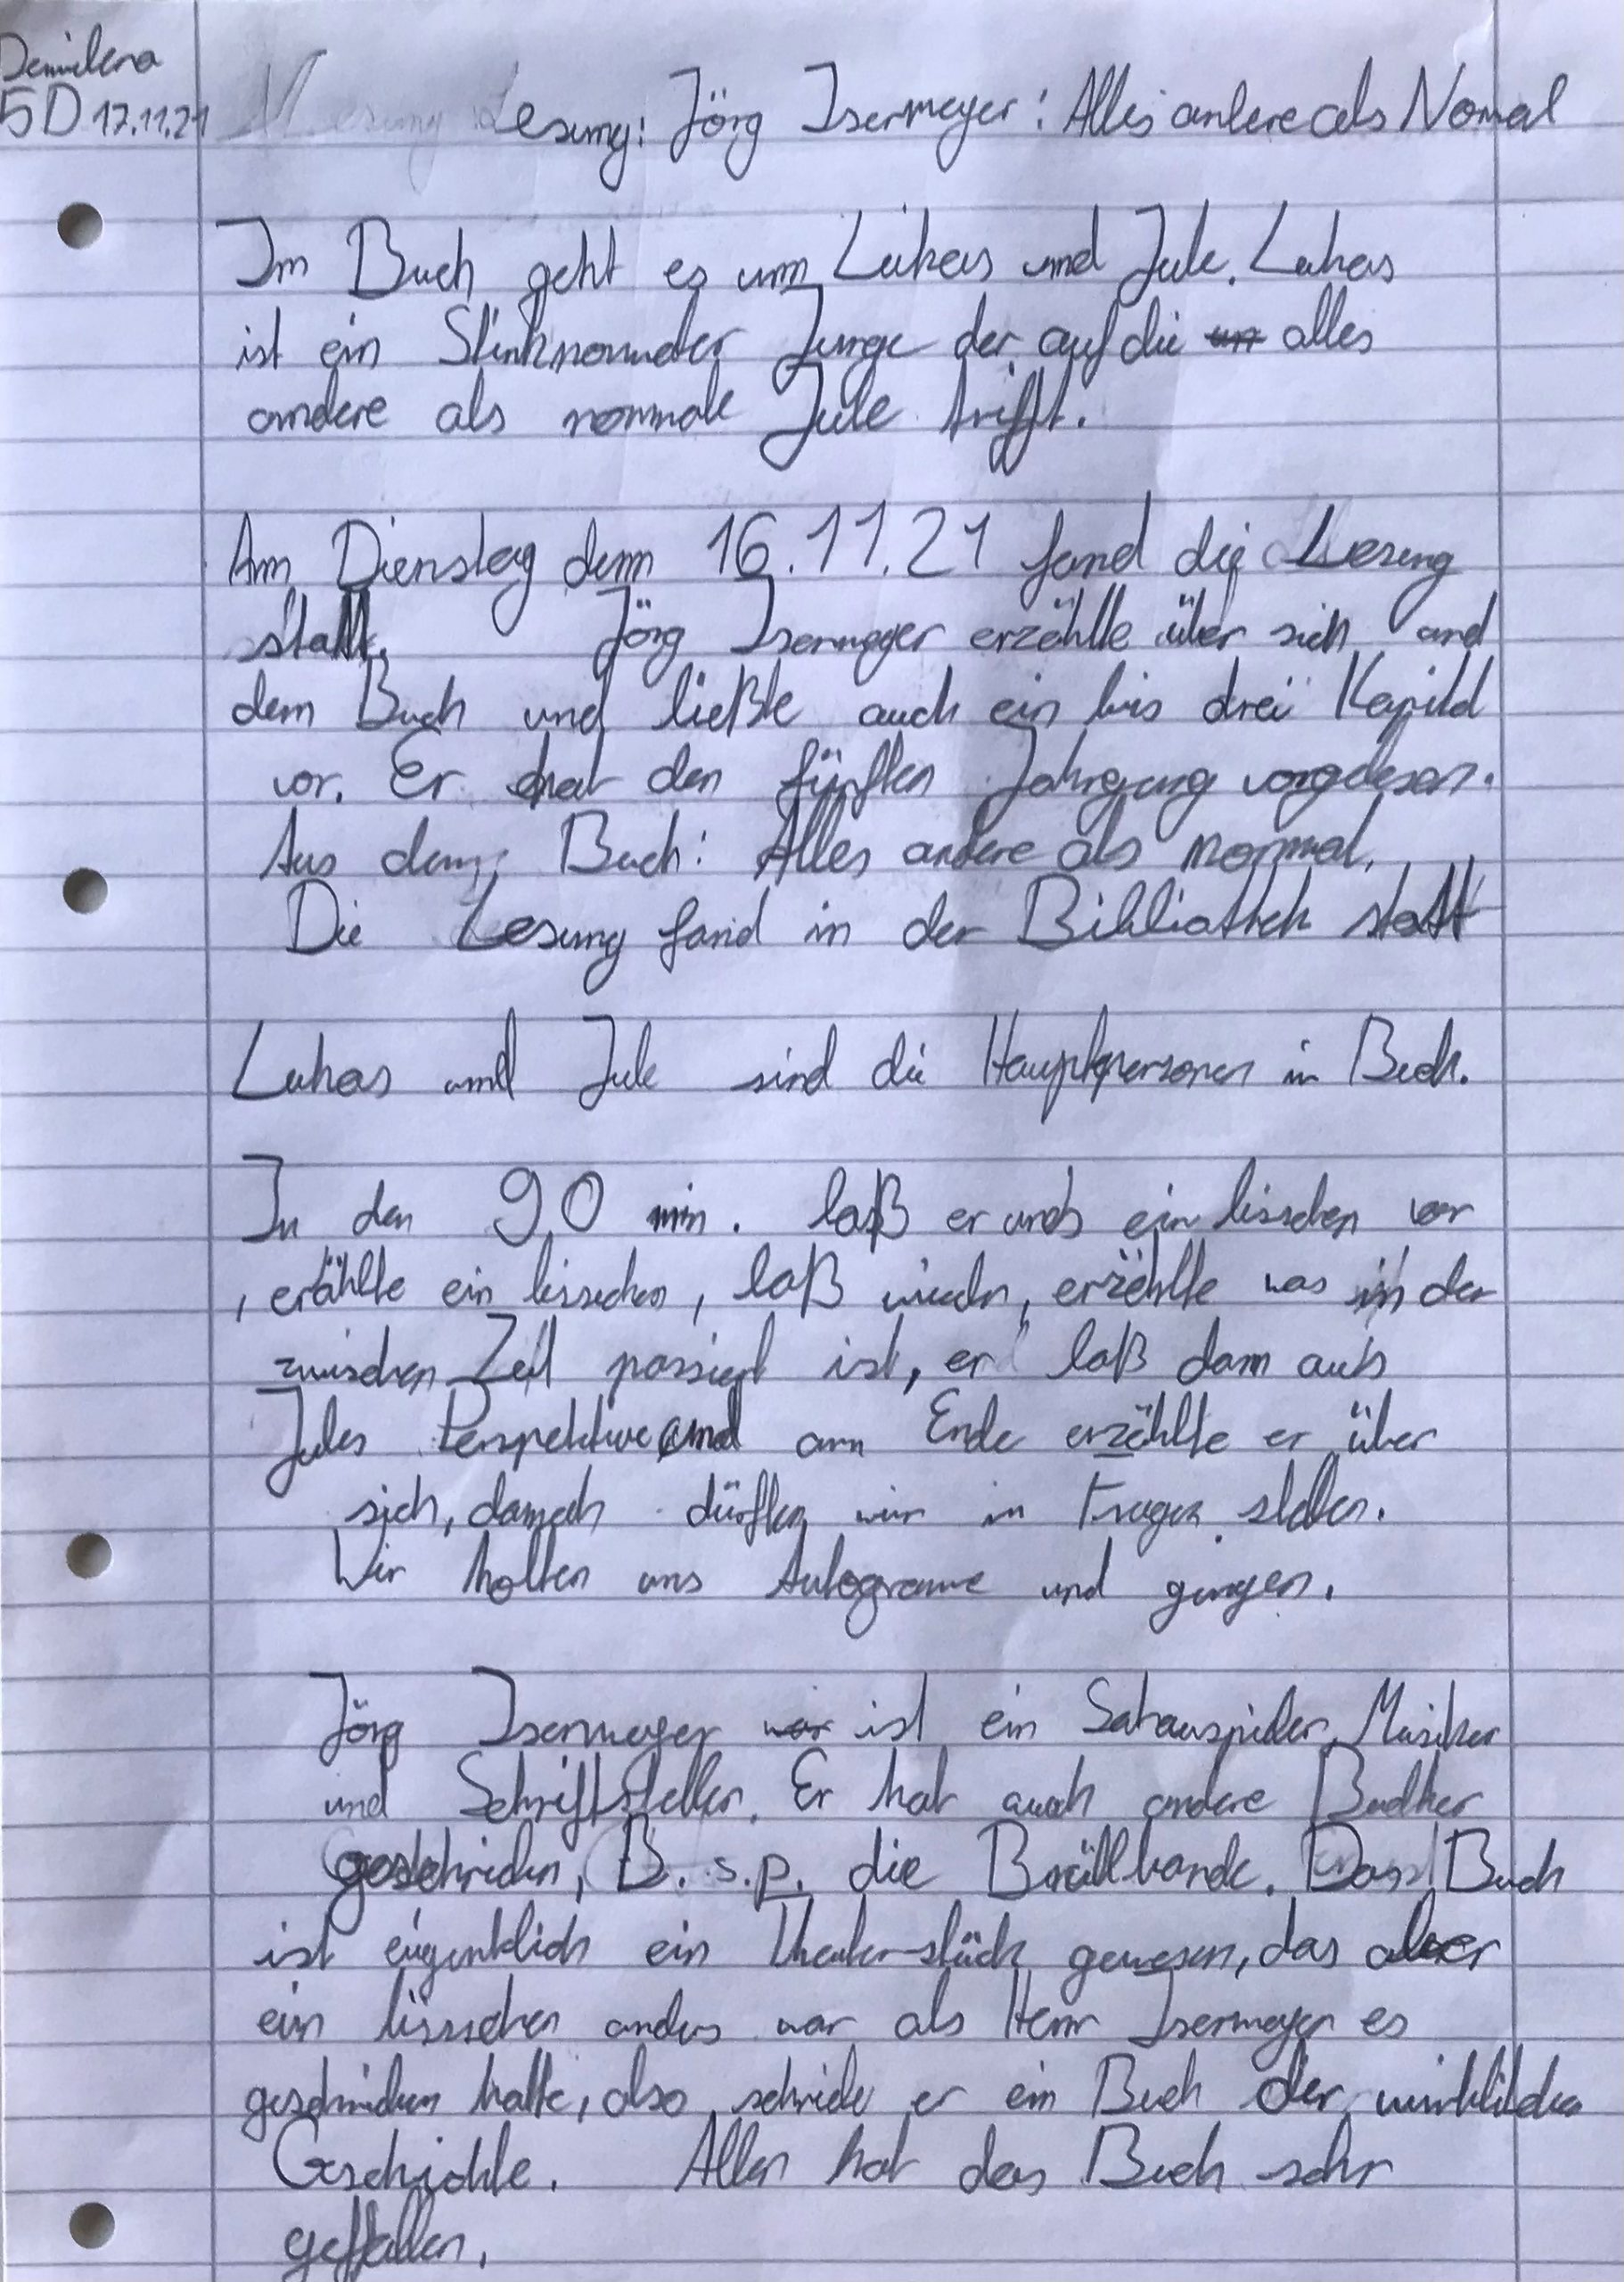 Demilena
5D 17.11.21
Lesung: Jörg Isermeyer: Alles andere als Nomal
Im Buch geht es um Lukas und Jule. Lukas
ist ein Stinknormaler Junge der auf die alles
andere als normale Jule trifft.
Am Dienstag dem 16.11.21 fand die Lesung
statt. Jörg Isermeyer erzählte über sich und
dem Buch und ließte auch ein bis drei Kapitel
vor. Er hat den fünften Jahrgang vorgelesen.
Aus dem Buch: Alles andere als normal.
Die Lesung fand in der Bibliothek statt
Lukas und Jule sind die Hauptpersonen in Buch.
In den 90 min. laß er uns ein bisschen vor
, erzählte ein bisschen, laß wieder, erzählte was in der
zwischen Zeit passiert ist, er laß dann aus
Jules Perspektive und am Ende erzählte er über
sich, danach dürften wir in Fragen stellen.
Wir holten uns Autogramme und gingen.
Jörg Isermeyer war ist ein Schauspieler, Musiker
und Schriftsteller. Er hat auch andere Bücher
geschrieben, B.s.p. die Brüllbande. Das Buch
ist eigentlich ein Theaterstück gewesen, das aber
ein bisschen anders war als Herr Isermeyer es
geschrieben hatte, also schrieb er ein Buch der wirklichen
Geschichte. Allen hat das Buch sehr
gefallen.